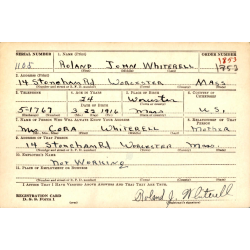 SERIAL NUMBER 1. NAME (Print) ORDER NUMBER
1108 ROLAND JOHN WHITERELL 1853
1853
2. ADDRESS (Print)
14 STONEHAM RD WORCESTER MASS.
3. TELEPHONE 4. AGE IN YEARS 5. PLACE OF BIRTH 6. COUNTRY OF CITIZENSHIP
24 WORCESTER
5-1767 3 22 1916 MASS U.S.
7. NAME OF PERSON WHO WILL ALWAYS KNOW YOUR ADDRESS 8. RELATIONSHIP OF THAT PERSON
MRS CORA WHITERELL MOTHER
9. ADDRESS OF THAT PERSON
14 STONEHAM RD WORCESTER MASS.
10. EMPLOYER'S NAME
NOT WORKING
11. PLACE OF EMPLOYMENT OR BUSINESS
I AFFIRM THAT I HAVE VERIFIED ABOVE ANSWERS AND THAT THEY ARE TRUE.
REGISTRATION CARD
D. S. S. FORM 1
Roland J. Whiterell